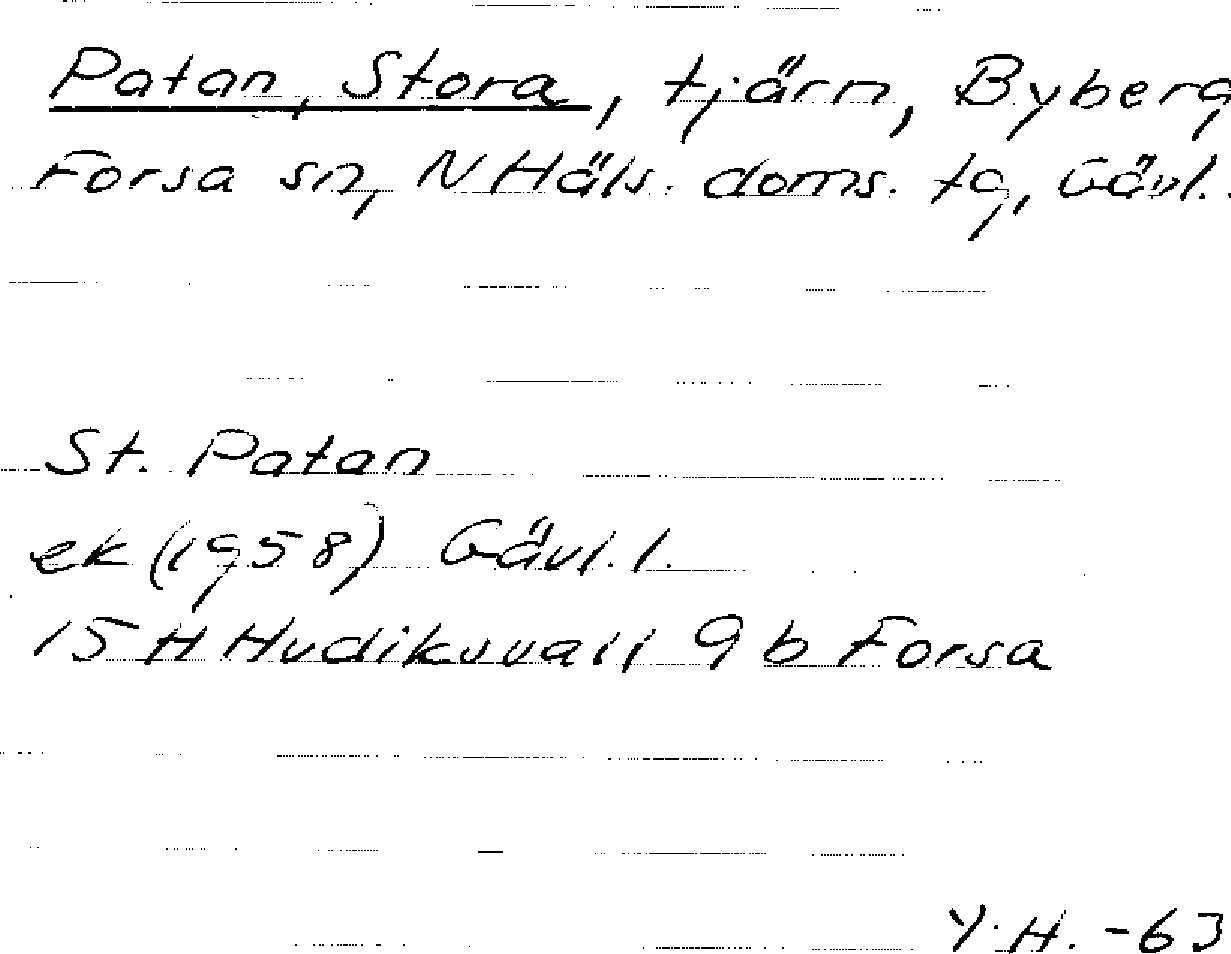 Patan, Stora, tjärn, Byberg
Forsa sn, N Häls. doms. tg, Gävl.
St. Patan
ek (1958) Gävl. l.
15 H Hudiksvall 9 b Forsa
Y. H. -63